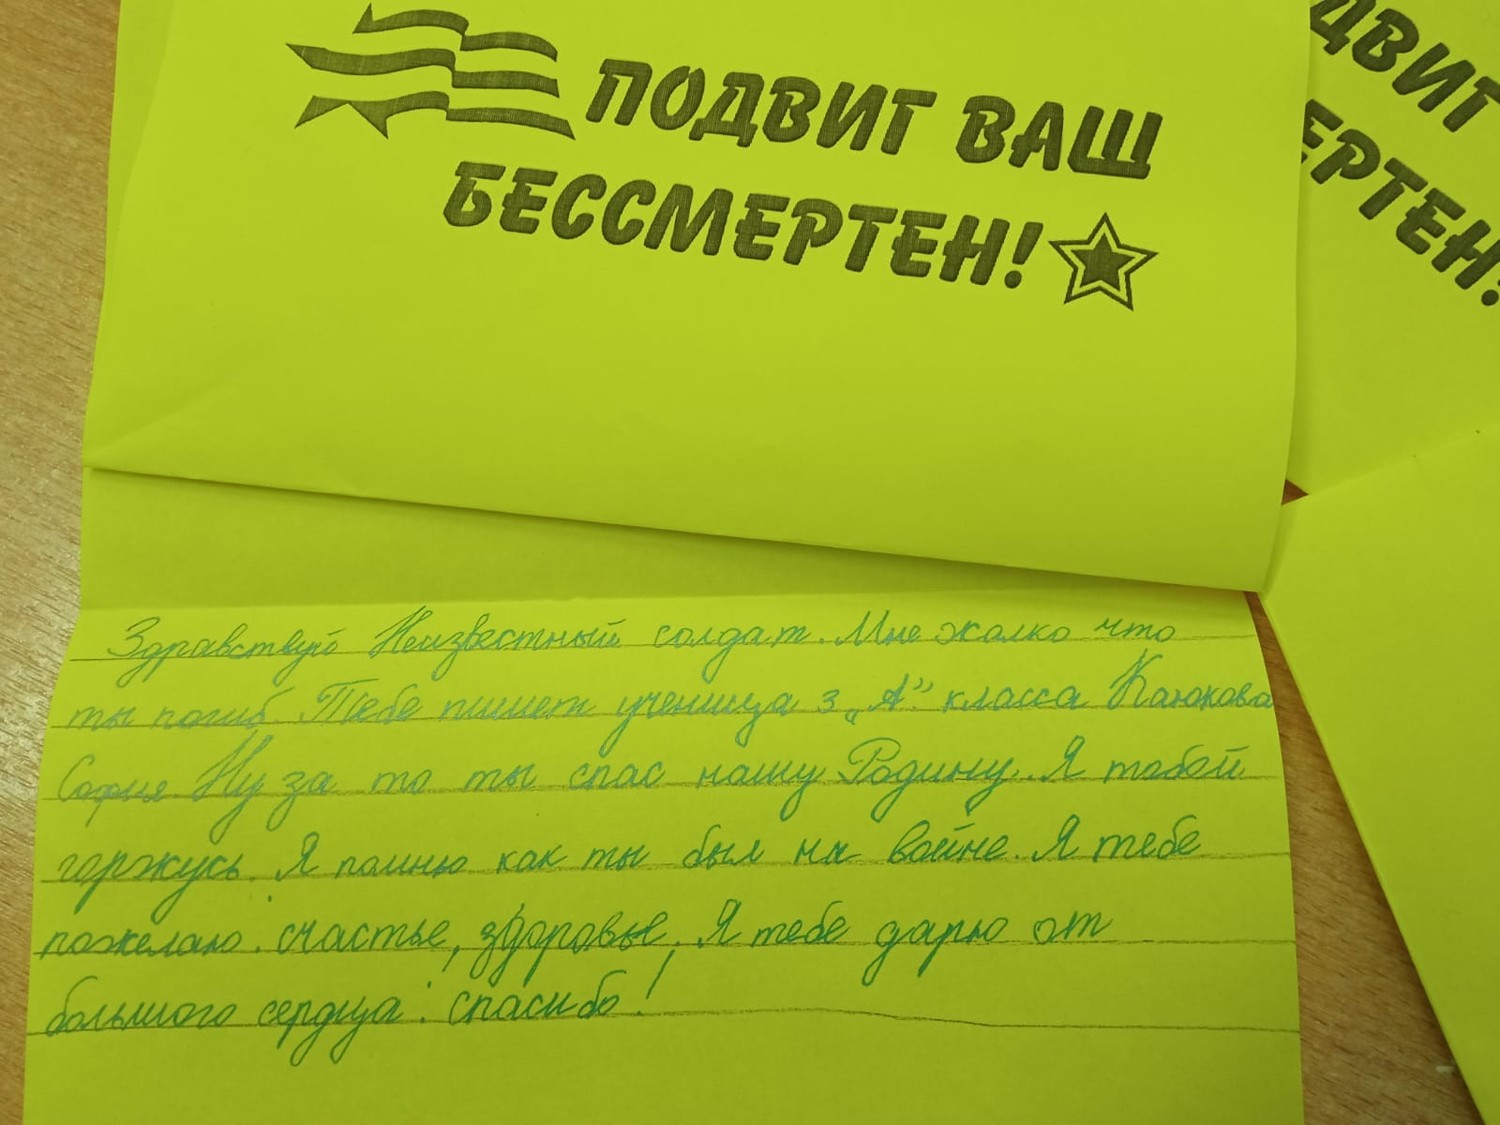 ПОДВИГ ВАШ
БЕССМЕРТЕН!
ДВИГ
ЕРТЕН!
Здравствуй Неизвестный солдат. Мне жалко что
ты погиб. Тебе пишет ученица 3 „А" класса Каюкова
София. Ну за то ты спас нашу Родину. Я тобой
горжусь. Я помню как ты был на войне. Я тебе
пожелаю: счастье, здоровье. Я тебе дарю от
большого сердца: спасибо!